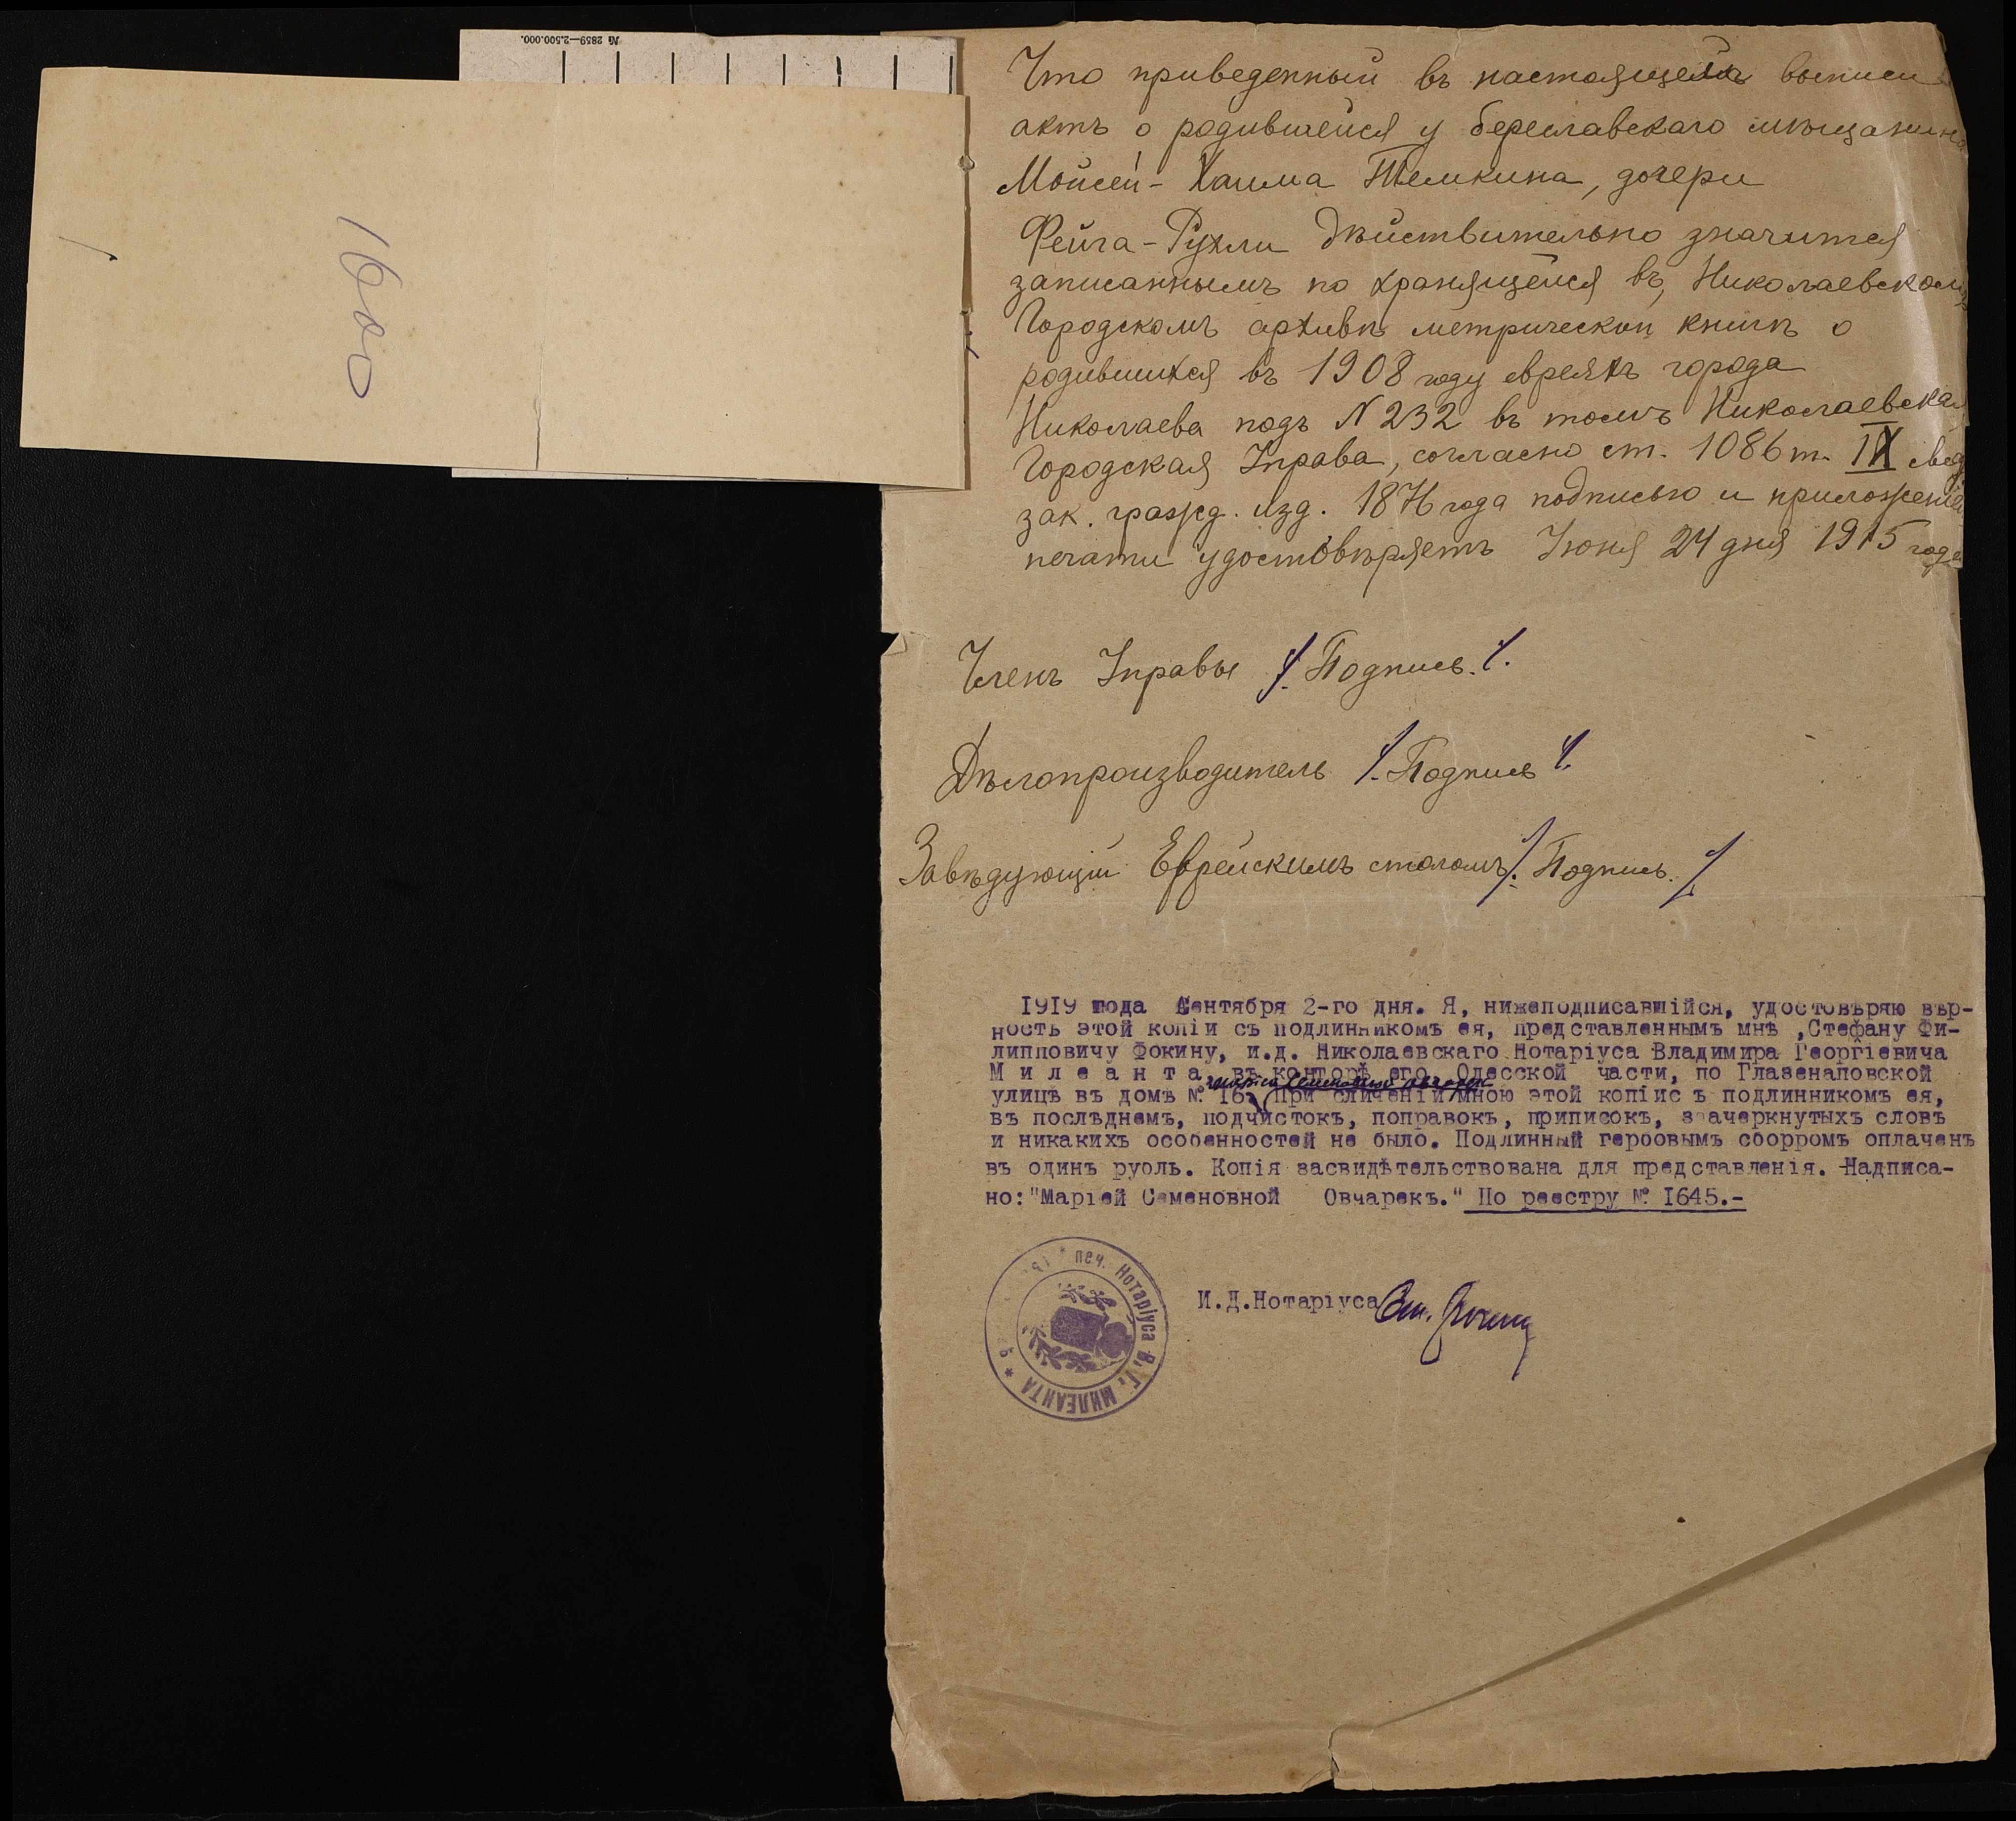 № 2859—2.500.000.
1600
Что приведенный въ настоящей выписи
актъ о родившейся у бериславскаго мѣщанина
Мойсей-Хаима Темкина, дочери
Фейга-Рухли дѣйствительно значится
записаннымъ по хранящейся въ Николаевскомъ
Городскомъ архивѣ метрической книгѣ о
родившихся въ 1908 году евреяхъ города
Николаева подъ N 232 въ томъ Николаевская
Городская Управа, согласно ст. 1086 т. IX свод
зак. гражд. изд. 1876 года подписью и приложеніем
печати удостовѣряетъ Июня 24 дня 1915 года
Членъ Управы /. Подпись. /.
Дѣлопроизводитель /. Подпись /.
Завѣдующій Еврейскимъ столомъ /. Подпись. /
1919 года Сентября 2-го дня. Я, нижеподписавшійся, удостовѣряю вѣр-
ность этой копіи съ подлинникомъ ея, представленнымъ мнѣ ,Стефану Фи-
липповичу Фокину, и.д. Николаевскаго Нотаріуса Владимира Георгіевича
М и л е а н т а, въ конторѣ его, Одесской части, по Глазенаповской
Маріей Семеновной Овчарекъ
улицѣ въ домѣ № 16. При сличеніи мною этой копіис ъ подлинникомъ ея,
въ послѣднемъ, подчистокъ, поправокъ, приписокъ, заачеркнутыхъ словъ
и никакихъ особенностей не было. Подлинный гербовымъ сборромъ оплаченъ
въ одинъ рубль. Копія засвидѣтельствована для представленія. Надписа-
но:"Маріей Семеновной Овчарекъ." По реестру № 1645.-
печ. Нотаріуса В. Г. МИЛЕАНТА
И.Д.Нотаріуса Ст. Фокинъ